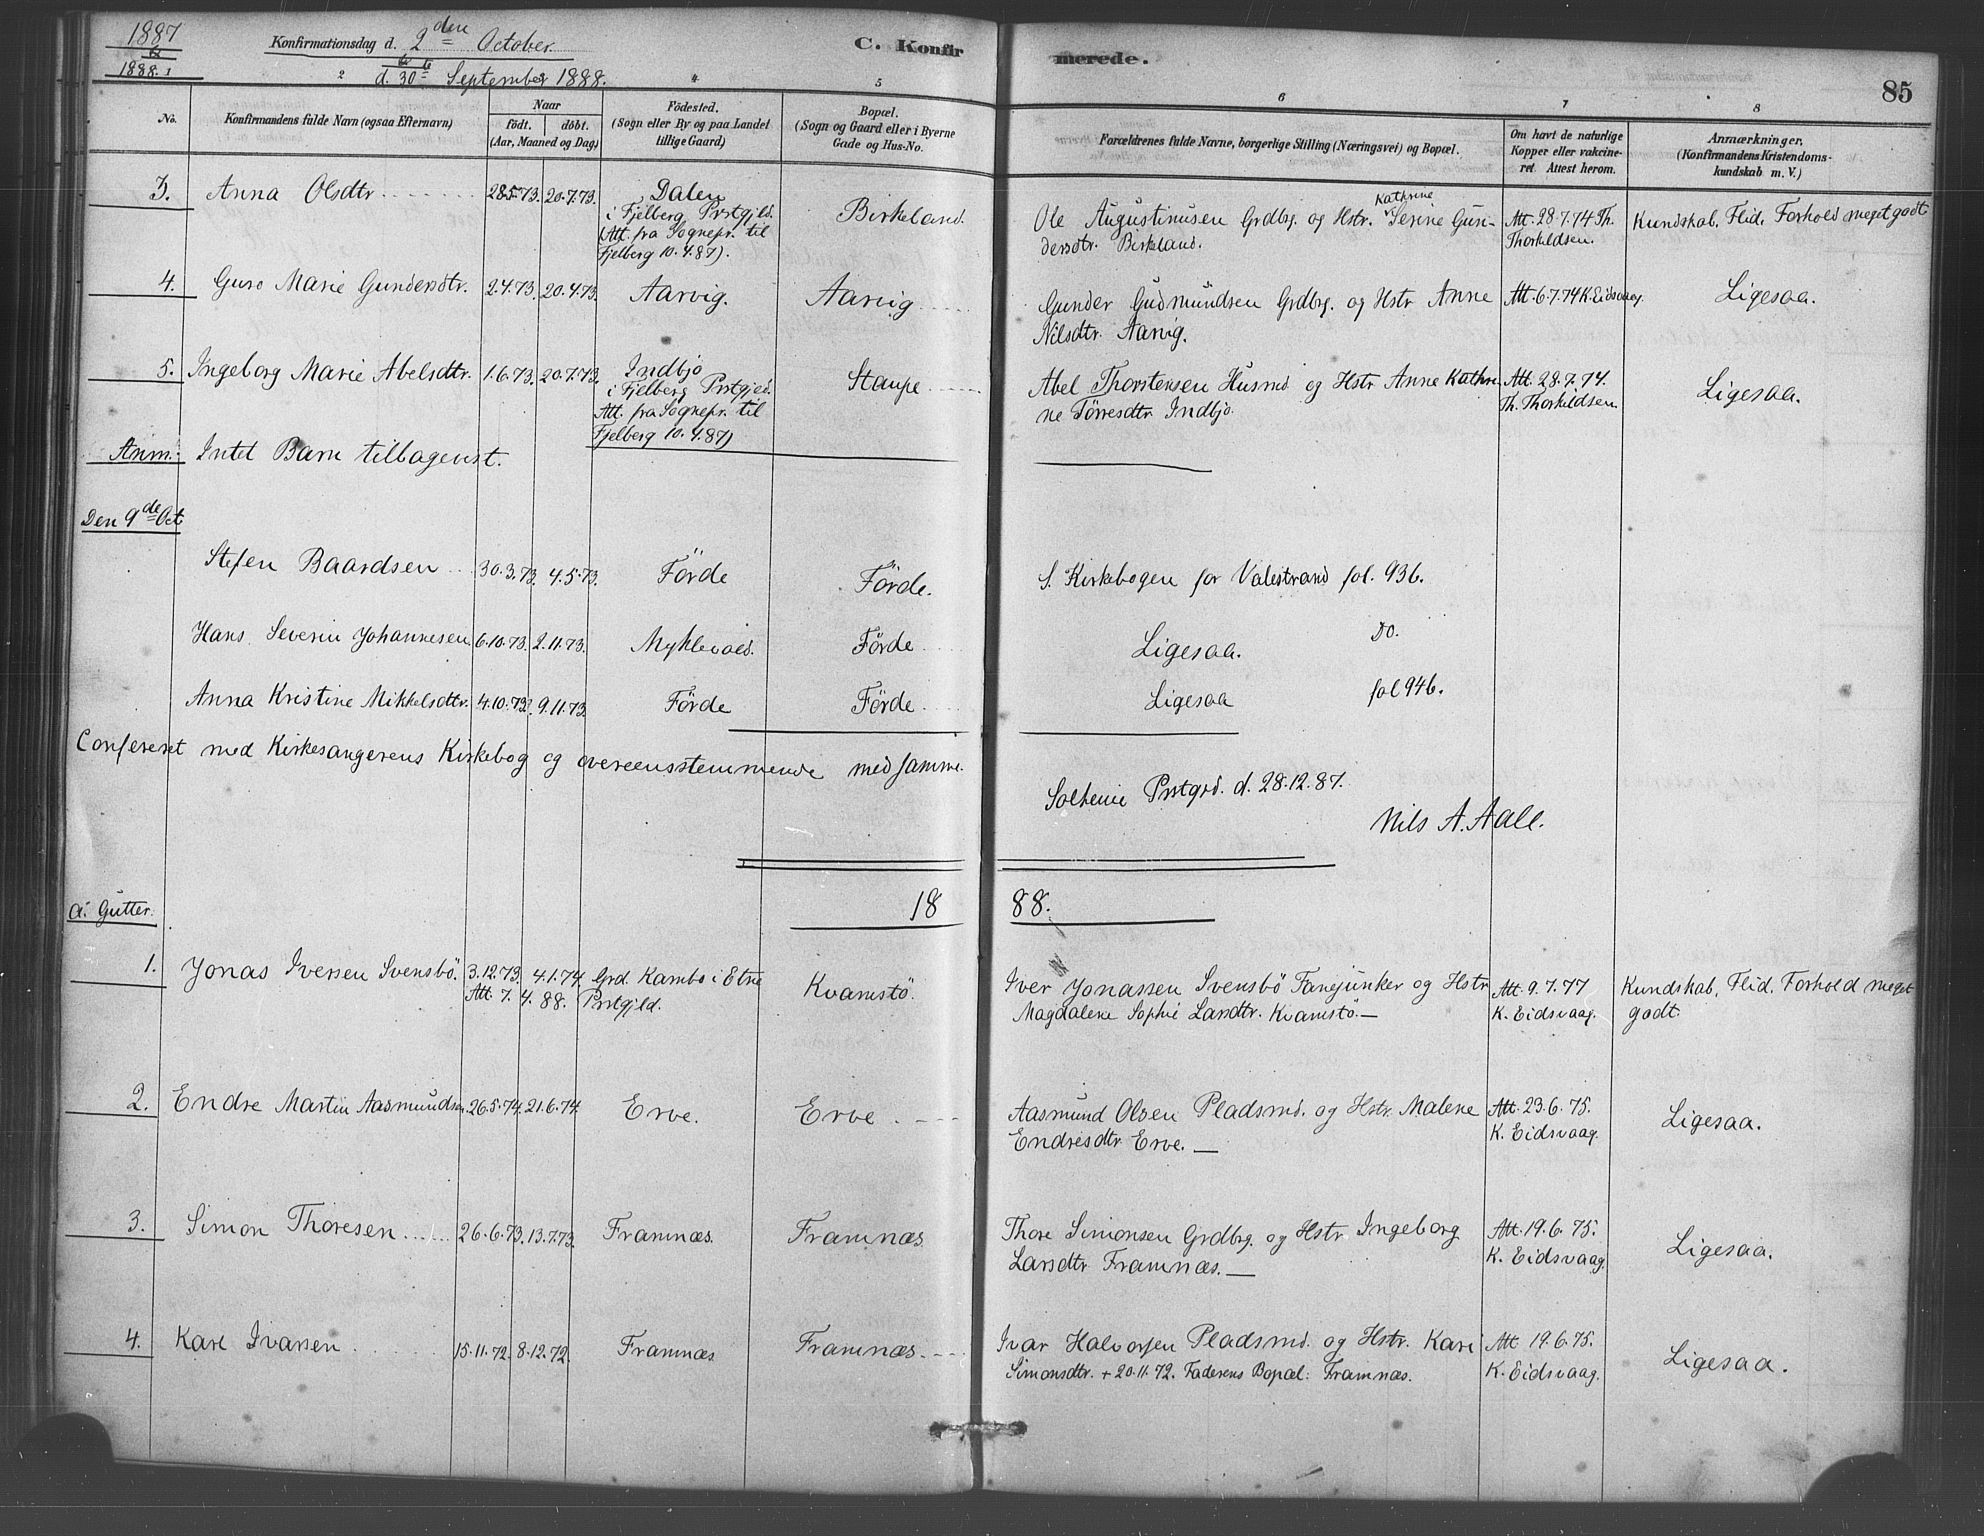 1887
&
1888.
Konfirmationsdag d. 2den October.
d. 30te September 1888.
C. Konfirmerede.
85
1 2 4 5 6 7 8
No.
Konfirmandens fulde Navn (ogsaa Efternavn)
Naar
födt. döbt.
(Aar, Maaned og Dag)
Födested.
(Sogn eller By og paa Landet
tillige Gaard)
Bopæl.
(Sogn og Gaard eller i Byerne
Gade og Hus-No.
Forældrenes fulde Navne, borgerlige Stilling (Næringsvei) og Bopæl.
Om havt de naturlige
Kopper eller vakcine-
ret Attest herom.
Anmærkninger.
(Konfirmandens Kristendoms-
kundskab m. V.)
3. Anna Olsdtr 28.5.73. 20.7.73. Dalen
i Fjelberg Prstgjld.
(Att. fra Sognepr. til
Fjelberg 10.4.87).
Birkeland.
Ole Augustinusen Grdbg. og Hstr. Kathrine Serine Gun-
dersdtr. Birkland.
Att. 28.7.74 Th.
Thorkildsen.
Kundskab, Flid, Forhold meget godt
4. Guro Marie Gundersdtr. 2.4.73. 20.4.73. Aarvig. Aarvig
Gunder Gudmundsen Grdbrg. og Hstr Anne
Nilsdtr. Aarvig.
Att. 6.7.74 K. Eidsvaag.
Ligesaa.
5. Ingeborg Marie Abelsdtr. 1.6.73. 20.7.73. Indbjo
i Fjelberg Prstgjeld.
Att. fra Sognepr. til
Fjelberg 10.4.87)
Staupe
Abel Thorstensen Husmd og Hstr Anne Kathri-
ne Törresdtr Indbjo.
Att. 28.7.74.
Th. Thorkildsen.
Ligesaa.
Anm: Intet Barn tilbagevist.
Den 9de Oct
Stefen Baardsen 30.3.73. 4.5.73. Förde Förde.
S. Kirkebogen for Valestrand fol. 936.
Hans Severin Johannesen 6.10.73. 2.11.73. Myklevold. Förde
Ligesaa. Do.
Anna Kristine Mikkelsdtr. 4.10.73. 9.11.73. Förde Förde
Ligesaa fol 946.
Confereret med Kirkesangerens Kirkebog og overeensstemmende med samme.
Prstgrd. d. 28.12.87.
Nils A. Aall.
1888.
a. Gutter.
1. Jonas Iversen Svensbö. 3.12.73. 4.1.74. Grd. Kambo i Etne
Att. 7.4.88. Prstgjld.
Kvamstö.
Iver Jonassen Svensbö Fanejunker og Hstr
Magdalene Sophie Larsdtr. Kvamstö.—
Att. 9.7.77
K. Eidsvaag.
Kundskab, Flid, Forhold meget
godt.
2. Endre Martin Aasmundsen. 26.5.74. 21.6.74. Erve. Erve.
Aasmund Olsen Pladsmd. og Hstr. Malene
Endresdtr. Erve. —
Att. 23.6.75.
K. Eidsvaag.
Ligesaa.
3. Simon Thoresen 26.6.73. 13.7.73. Framnæs. Framnæs.
Thore Simonsen Grdbrg. og Hstr. Ingeborg
Larsdtr Framnæs. —
Att. 19.6.75.
K. Eidsvaag.
Ligesaa.
4. Karl Ivarsen 15.11.72. 8.12.72. Framnæs Framnæs.
Ivar Halvorsen Pladsmd. og Hstr. Kari
Simonsdtr. + 20.11.72. Faderens Bopæl: Framnæs.
Att 19.6.75.
K. Eidsvaag.
Ligesaa.